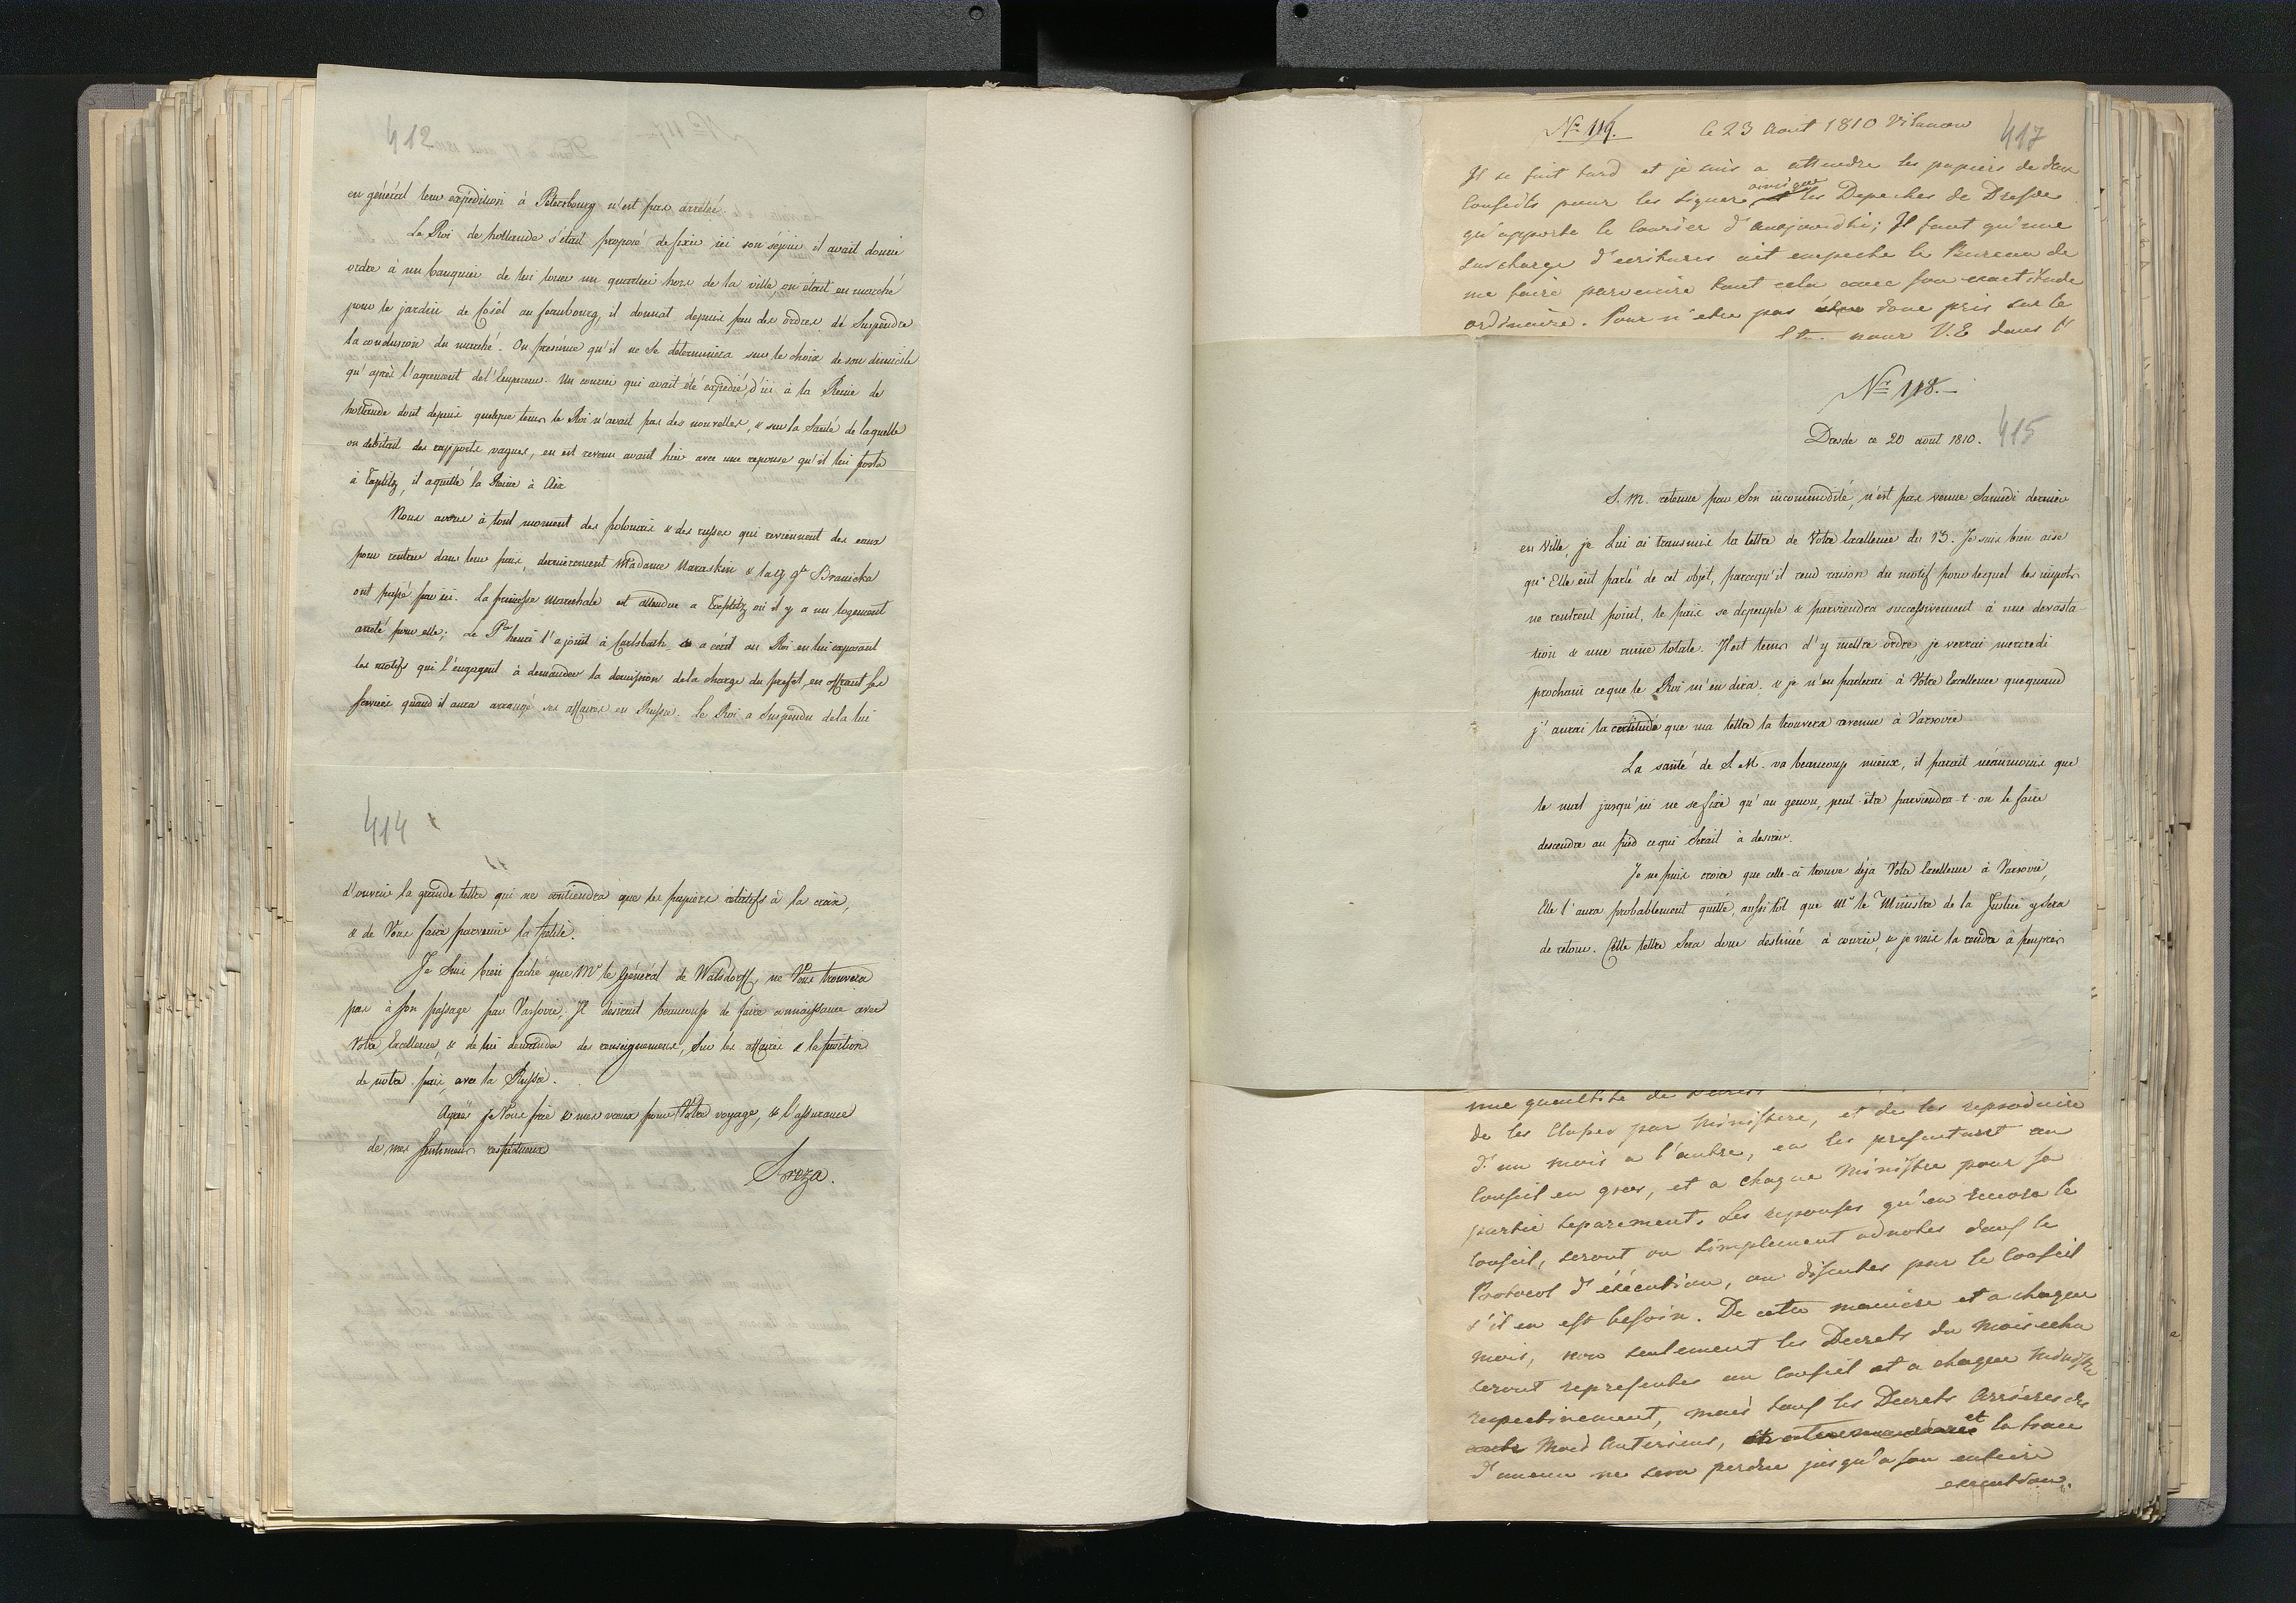 412
en général leur expédition à Pétersbourg n'est pas arrêtée.
Le Roi de hollande s'était proposé de fixer ici son séjour il avait donné
ordre à un banquier de lui louer un quartier hors de la ville, on était en marché
pour le jardin de Cosel au feaubourg, il donnat depuis peu des ordres de Suspendre
la conclusion du marché. On présume qu'il ne Se determinera sur le choix de son domicile
qu'après l'agrement de l'Empereur. Un courier qui avait été expedié d'ici à la Reine de
hollande dont depuis quelque tems le Roi n'avait pas des nouvelles, & sur la Santé de laquelle
on debitait des rapports vagues, en est revenu avant hier avec une reponse qu'il lui porta
à Toplitz, il a quitté la Reine à Aix
Nous avons à tout moment des polonais & des russes qui reviennent des eaux
pour rentrer dans leur païs, dernierement Madame Naraskin & la Branicka
ont passé par ici. La princesse Marechale est attendue a Toeplitz où il y a un logement
arreté pour elle; Le Pce henri l'a joint à Carlsbath, a écrit au Roi en lui exposant
les motifs qui l'engagent à demander la demission de la charge du prefet, en offrant ses
services quand il aura arrangé ses affaires en Russie. Le Roi a Suspendu de la lui
414
d'ouvrir la grande lettre qui ne contiendra que les papiers rélatifs à la croix,
& de Vous faire parvenir la petite.
Je Suis bien faché que Mr le Général de Watsdorff, ne Vous trouvera
pas à Son passage par Varsovie, Il desirait beaucoup de faire connaissance avec
Votre Excellence, & de lui demander des renseignemens, Sur les affaires & la position
de notre païs, avec la Russie.
Agréés je Vous prie & mes vœux pour Votre voyage, & l'assurance
de mes Sentimens respectueux
Breza.
Nr 119.
le 23 Aout 1810 Vilanow
417
Il se fait tard et je suis a attendre les papiers de deux
Conseils pour les signer ainsi que les Depeches de Dresde
qu'apporte le Courier d'aujourdhi; Il faut qu'une
surcharge d'ecritures ait empeche le Bureau de
me faire parvenire tout cela avec son exactitude
ordinaire. Pour n'etre pas donc pris sur le
pour V.E dans l'
Nr 118.
Dresde ce 20 août 1810.
415
S. M. retenue par Son incommodité, n'est pas venue Samedi dernier
en Ville, je Lui ai transmis la lettre de Votre Excellence du 13. Je suis bien aise
qu'Elle eût parlé de cet objet, parcequ'il rend raison du motif pour lequel les impots
ne rentrent point, le païs se depeuple & parviendra successivement à une devasta-
tion & une ruine totale. Il est tems d'y mettre ordre, je verrai mercredi
prochain ce que le Roi m'en dira. & je n'en parlerai à Votre Excellence que quand
j'aurai la certitude que ma lettre la trouvera revenue à Varsovie
La santé de S. M. va beaucoup mieux, il parait néanmoins que
le mal jusqu'ici ne se fixe qu'au genou, peut-être parviendra-t-on le faire
descendre au pied ce qui Serait à desirer.
Je ne puis croire que celle-ci trouve déja Votre Excellence à Varsovie,
Elle l'aura probablement quitté, aussitôt que Mr le Ministre de la Justice y Sera
de retour. Cette lettre Sera donc destinée à courir, & je vais la rendre à peu près
une quantité de
de les Classer par Ministere, et de les reproduire
d'un mois a l'autre, en les presentant au
Conseil en gros, et a chaque Ministre pour sa
partie separement. Les reponses qu'en recevra le
Conseil, seront ou simplement adnotes dans le
Protocol d'éxécution, ou discutes par le Conseil
s'il en est besoin. De cette maniere et a chaque
mois, non seulement les Decrets du Mois echu
seront representes au Conseil et a chaque Ministre
respectivement, mais tous les Decrets Arrieres des
Mois Anterieurs, et la trace
d'aucun ne sera perdue jusqu'a son entiere
execution.